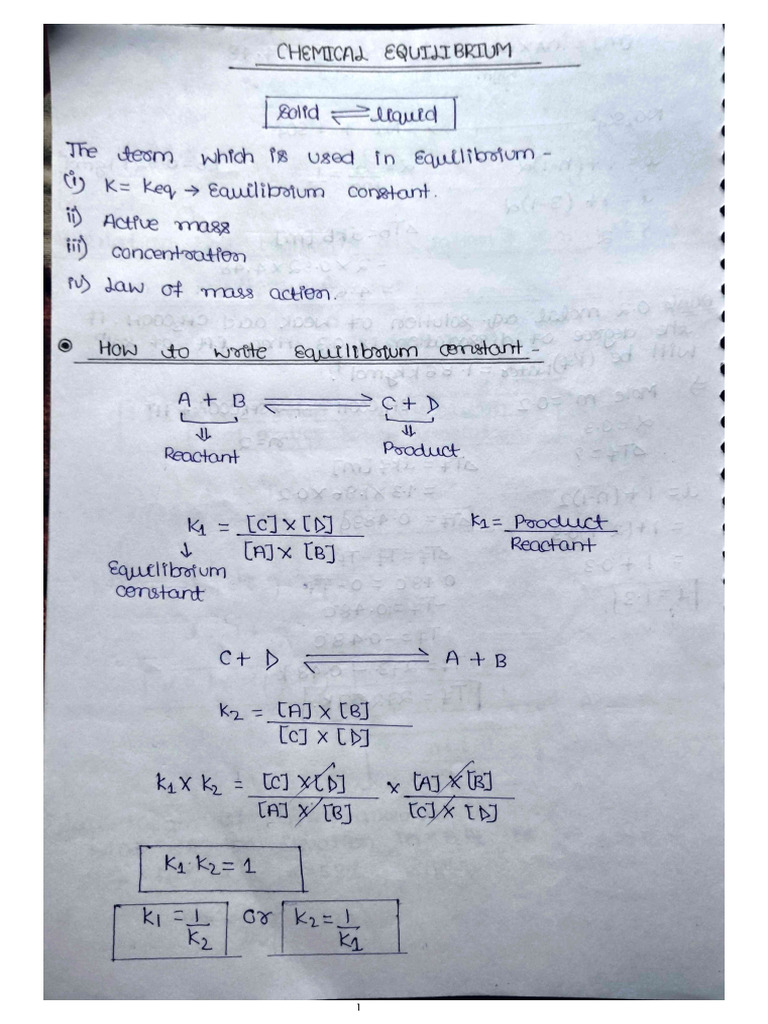 CHEMICAL EQUILIBRIUM
Solid ⇌ liquid
The term which is used in Equilibrium -
(i) K = Keq → Equilibrium constant.
ii) Active mass
iii) concentration
iv) Law of mass action.
How to write equilibrium constant -
A + B ⇌ C + D
⇓ ⇓
Reactant Product.
K1 = [C] X [D] / [A] X [B] K1 = Product / Reactant
↓
Equilibrium
constant
C + D ⇌ A + B
K2 = [A] X [B] / [C] X [D]
K1 X K2 = [C] X [D] / [A] X [B] X [A] X [B] / [C] X [D]
K1 · K2 = 1
K1 = 1 / K2 or K2 = 1 / K1
1